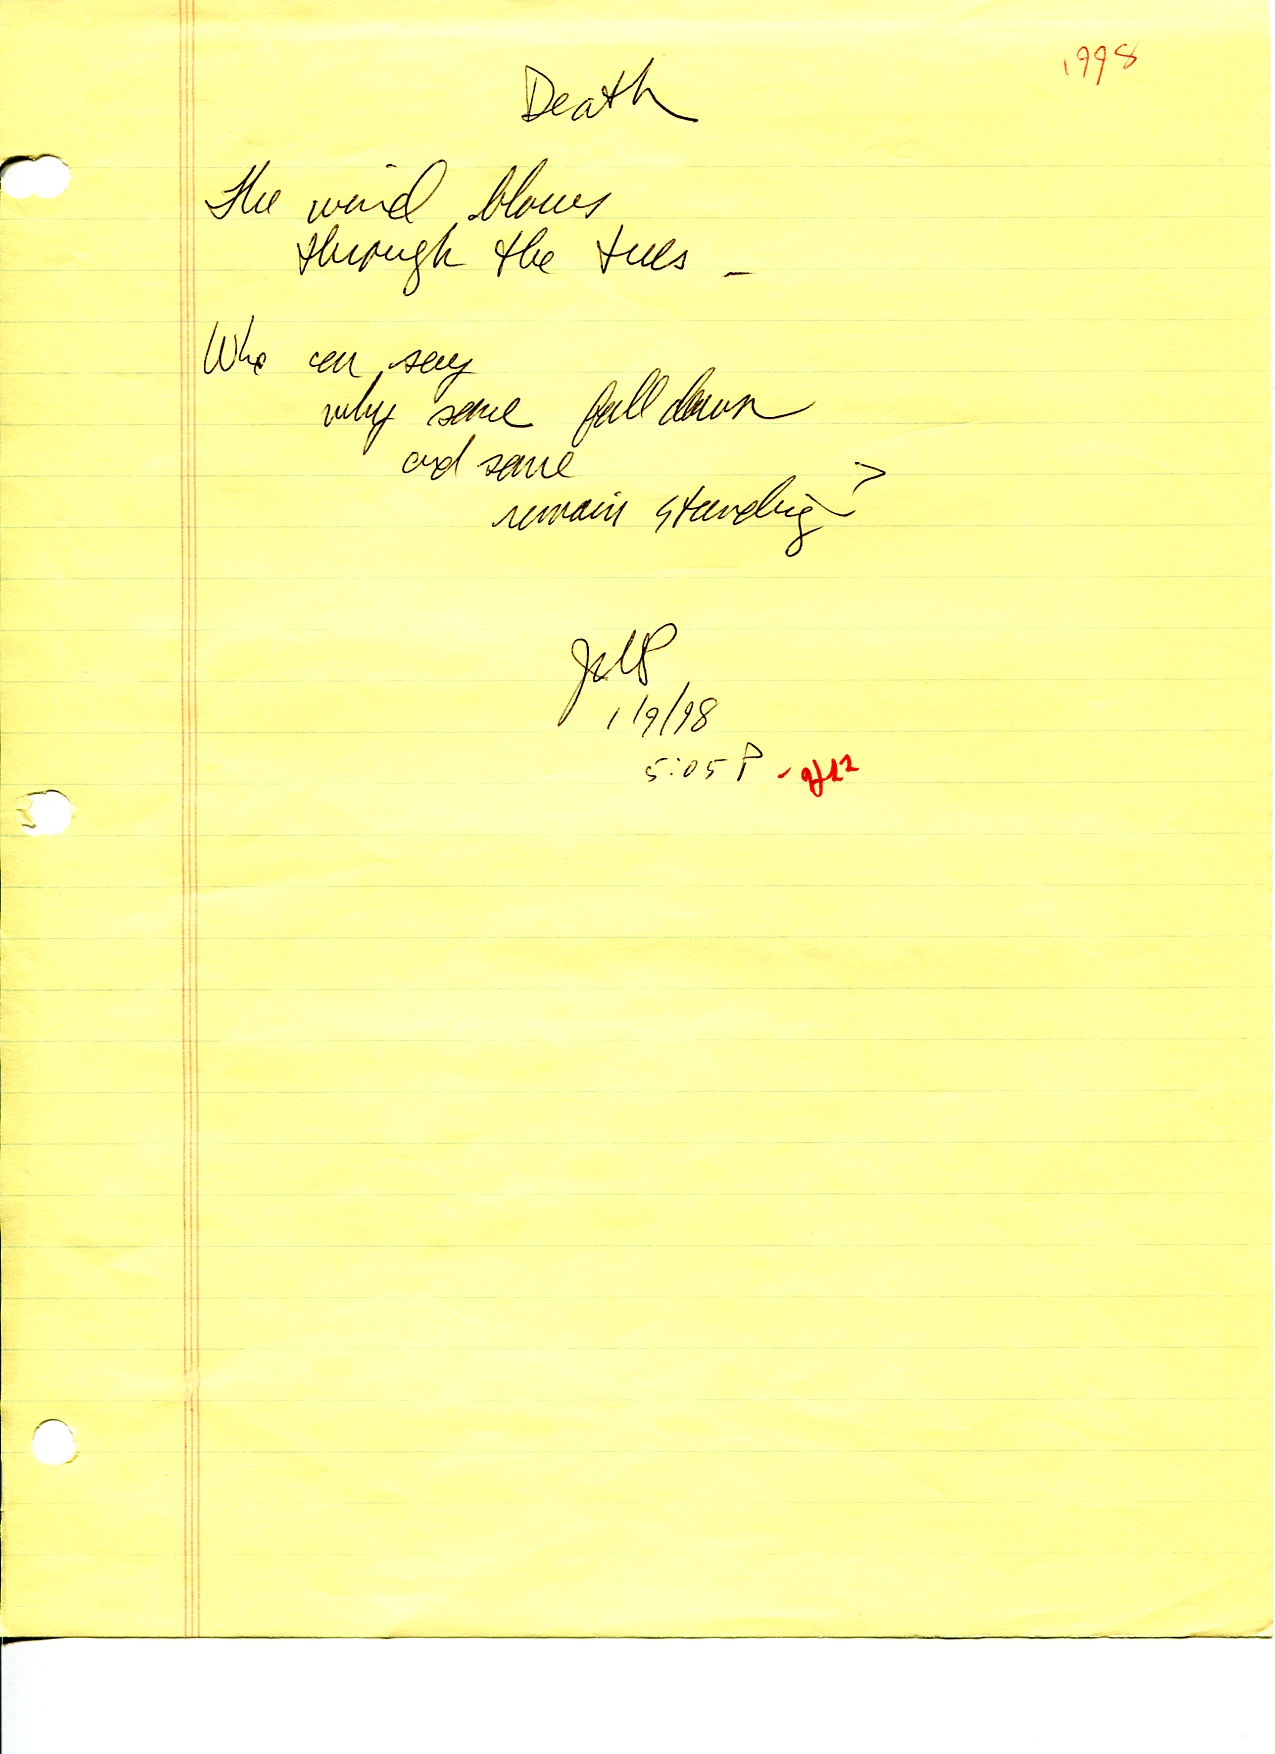 1998
Death
The wind blows
through the trees –
Who can say
why some fall down
and some
remain standing?
1/9/98
5:05 P